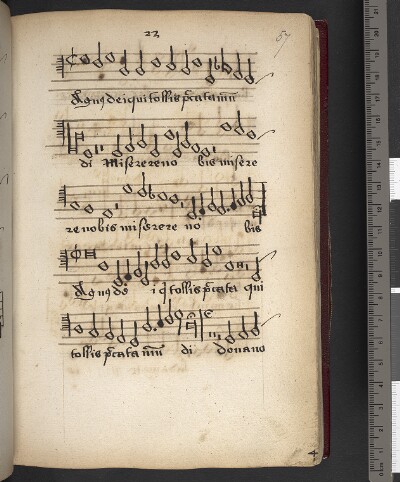 22
57
Agnus dei qui tollis p̄cata mūn
di Miserere no bis misere
re nobis miserere no bis
Agnus de i q tollis p̄cata qui
tollis p̄cata mūn di dona no
4